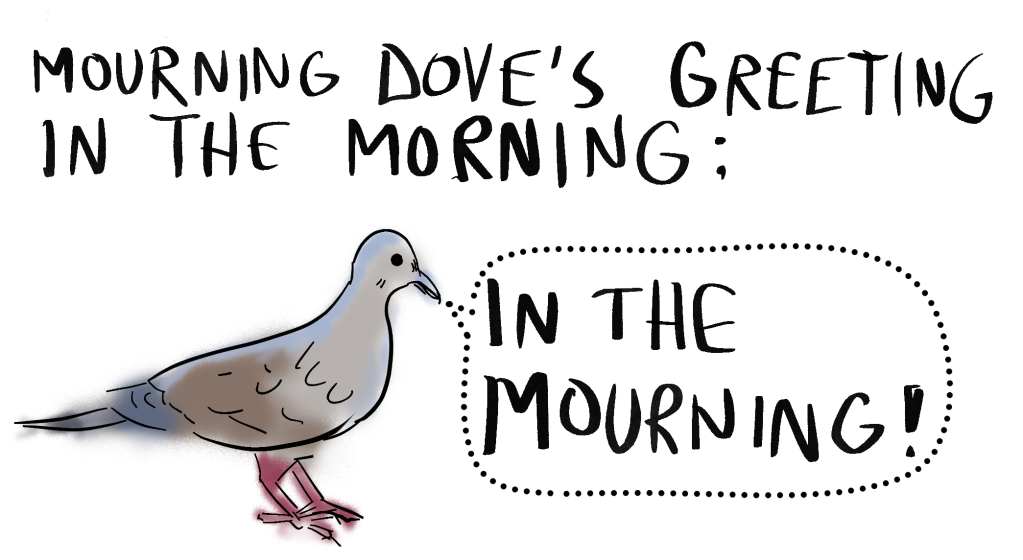 MOURNING DOVE'S GREETING
IN THE MORNING:
IN THE
MOURNING!